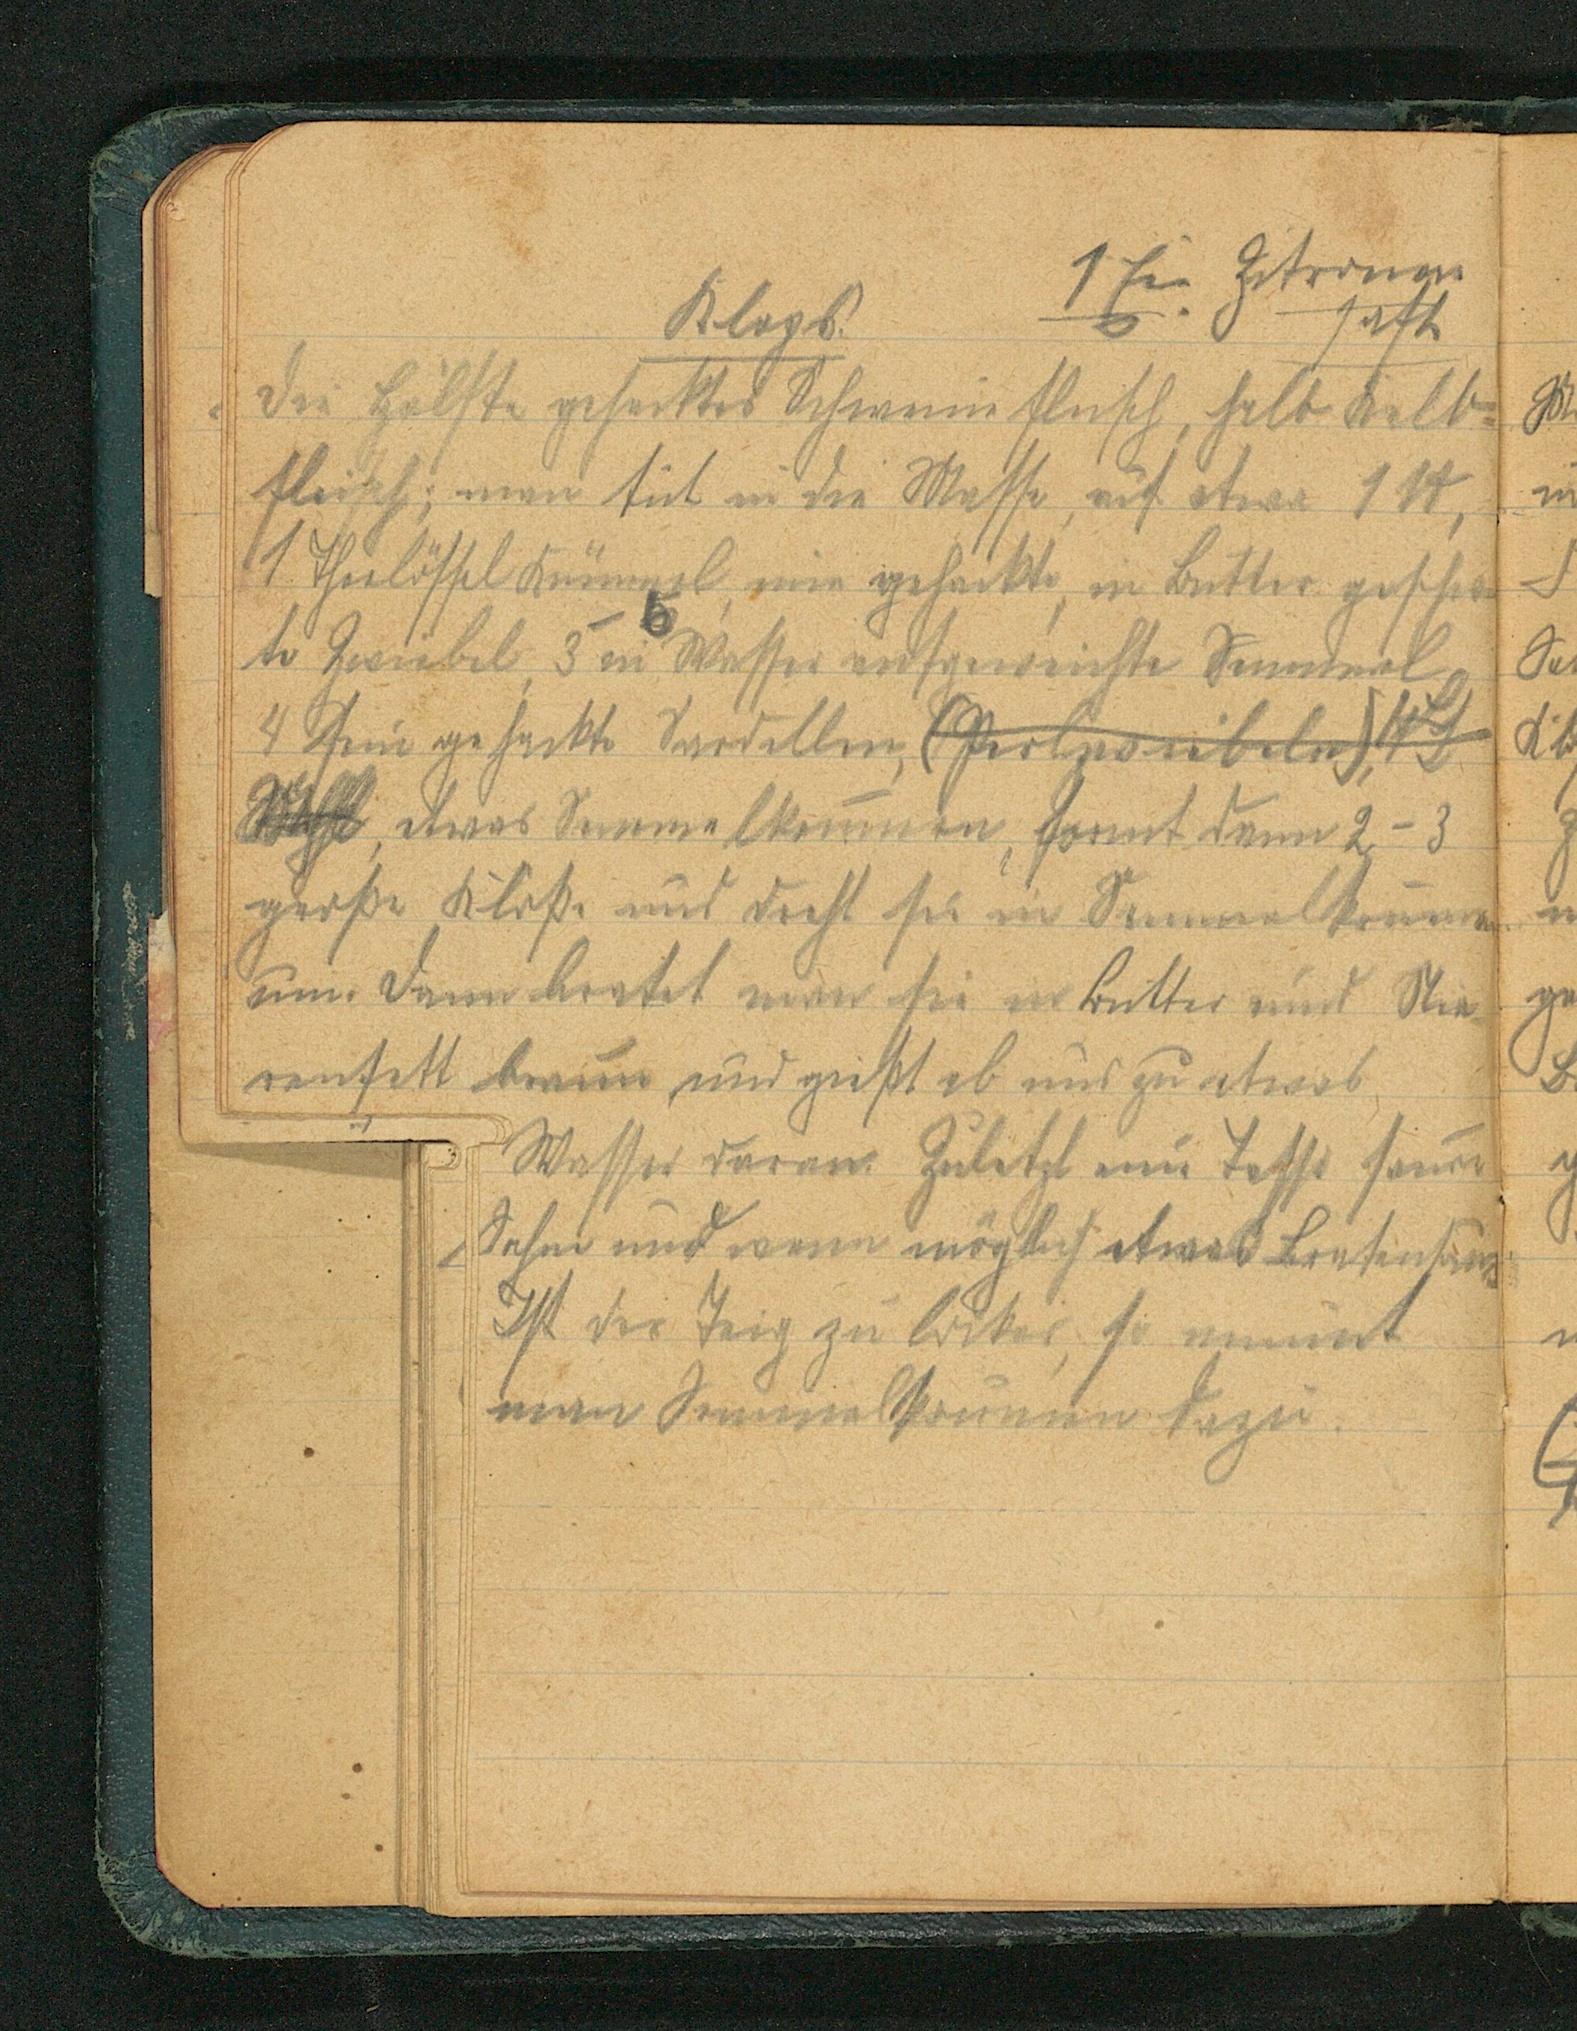 1 Ei. Zitronen
saft
Klops.
Die Hälfte gehacktes Schweinefleisch, halb Kalb=
fleisch; man tut in die Masse, auf etwa 1 ℔,
1 Theelöffel Kümmel, eine gehackte, in Butter geschwi
te Zwiebel, 3 in Wasser aufgeweichte Semmel,
5
4 fein gehackte Sardellen, (Perlzwiebeln),
Mehl, etwas Semmelkrumen, formt dann 2-3
große Klöße und dreht sie in Semmelkrumen
um. Dann bratet man sie in Butter und Nie
renfett braun und gießt ab und zu etwas
Wasser daran. Zuletzt eine Tasse saure
Sahne und wenn möglich etwas Bratensauce
Ist der Teig zu locker, so nimmt
man Semmelkrumen dazu.